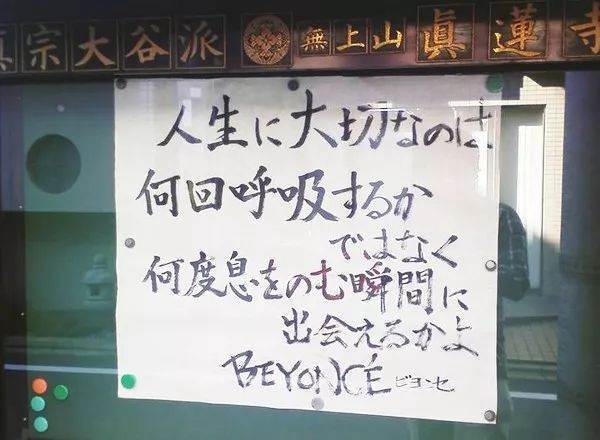 真宗大谷派 無上山 眞蓮寺
人生に大切なのは
何回呼吸するか
ではなく
何度息をのむ瞬間に
出会えるかよ
BEYONCÉ ビヨンセ